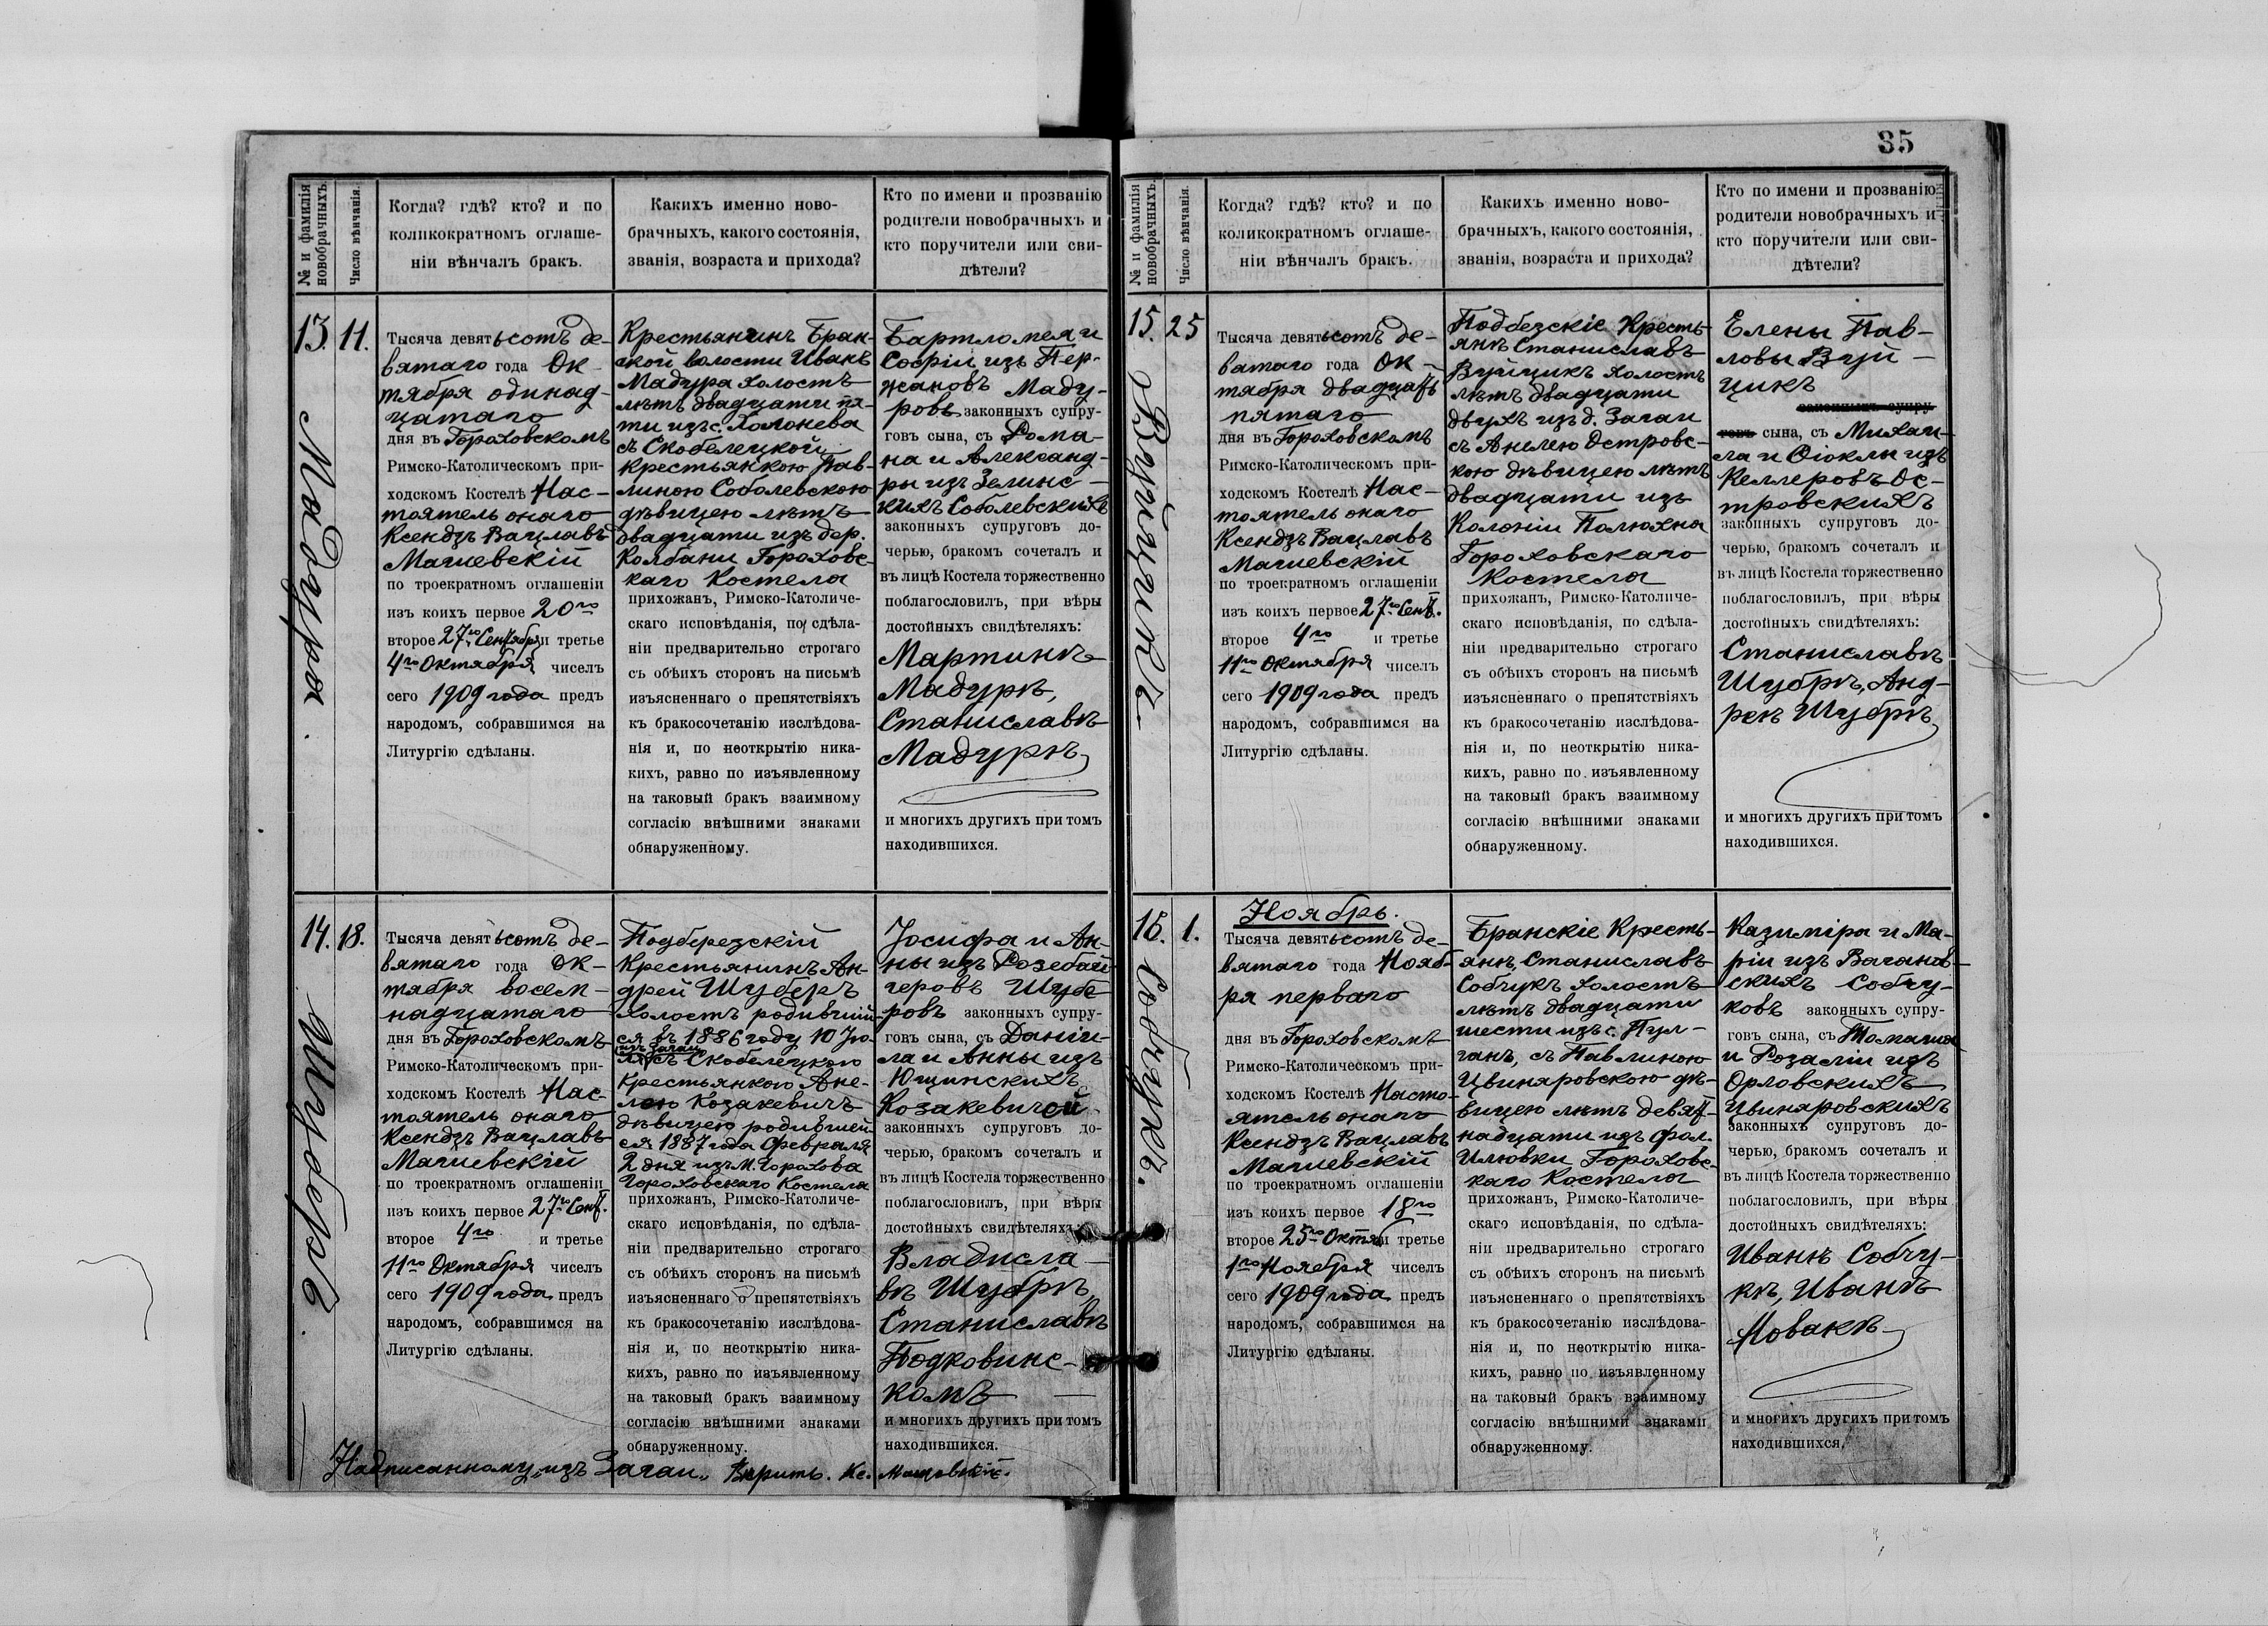 35
№ и фамилія новобрачныхъ.
Число вѣнчанія.
Когда? гдѣ? кто? и по
коликократномъ оглаше-
ніи вѣнчалъ бракъ.
Какихъ именно ново-
брачныхъ, какого состоянія,
званія, возраста и прихода?
Кто по имени и прозванію
родители новобрачныхъ и
кто поручители или сви-
дѣтели?
13.
Мадура.
11.
Тысяча девятьсотъ де-
вятаго года Ок-
тября одинад-
цатаго
дня въ Гороховскомъ
Римско-Католическомъ при-
ходскомъ Костелѣ Нас-
тоятель онаго
Ксендзъ Вацлавъ
Мачиевскій
по троекратномъ оглашеніи
изъ коихъ первое 20го
второе 27го Сентября и третье
4го Октября чиселъ
сего 1909 года предъ
народомъ, собравшимся на
Литургію сдѣланы.
Крестьянинъ Бран-
ской волости Иванъ
Мадура холостъ
лѣтъ двадцати пя-
ти изъ с. Холонева
съ Скобелецкой
крестьянкою Пав-
линою Соболевскою
дѣвицею лѣтъ
двадцати изъ дер.
Колбани Гороховс-
каго Костела
прихожанъ, Римско-Католиче-
скаго исповѣданія, по сдѣла-
ніи предварительно строгаго
съ обѣихъ сторонъ на письмѣ
изъясненнаго о препятствіяхъ
къ бракосочетанію изслѣдова-
нія и, по неоткрытію ника-
кихъ, равно по изъявленному
на таковый бракъ взаимному
согласію внѣшними знаками
обнаруженному.
Бартломея и
Софіи изъ Пер-
жановъ Маду-
ровъ законныхъ супру-
говъ сына, съ Рома-
на и Александ-
ры изъ Зелинс-
кихъ Соболевскихъ
законныхъ супруговъ до-
черью, бракомъ сочеталъ и
въ лицѣ Костела торжественно
поблагословилъ, при вѣры
достойныхъ свидѣтеляхъ:
Мартинѣ
Мадурѣ,
Станиславѣ
Мадурѣ
и многихъ другихъ при томъ
находившихся.
14.
Шуберъ.
18.
Тысяча девятьсотъ де-
вятаго года Ок-
тября восем-
надцатаго
дня въ Гороховскомъ
Римско-Католическомъ при-
ходскомъ Костелѣ Нас-
тоятель онаго
Ксендзъ Вацлавъ
Мачиевскій
по троекратномъ оглашеніи
изъ коихъ первое 27го Сент.
второе 4го и третье
11го Октября чиселъ
сего 1909 года предъ
народомъ, собравшимся на
Литургію сдѣланы.
Подберезскій
Крестьянинъ Ан-
дрей Шуберъ
холостъ родившій-
ся въ 1886 году 10 Ію-
изъ Загаи
ля съ Скобелецкою
крестьянкою Ане-
лею Козакевичъ
дѣвицею родившей-
ся 1887 года Февраля
2 дня изъ М. Горохова
Гороховскаго Костела
прихожанъ, Римско-Католиче-
скаго исповѣданія, по сдѣла-
ніи предварительно строгаго
съ обѣихъ сторонъ на письмѣ
изъясненнаго о препятствіяхъ
къ бракосочетанію изслѣдова-
нія и, по неоткрытію ника-
кихъ, равно по изъявленному
на таковый бракъ взаимному
согласію внѣшними знаками
обнаруженному.
Іосифа и Ан-
ны изъ Розебай-
геровъ Шубе-
ровъ законныхъ супру-
говъ сына, съ Даніи-
ла и Анны изъ
Ющинскихъ
Козакевичей
законныхъ супруговъ до-
черью, бракомъ сочеталъ и
въ лицѣ Костела торжественно
поблагословилъ, при вѣры
достойныхъ свидѣтеляхъ:
Владисла-
вѣ Шубрѣ,
Станиславѣ
Подковинс-
комъ
и многихъ другихъ при томъ
находившихся.
Надписанному "изъ Загаи" вѣрить. Кс. Мачиевскій.
№ и фамилія новобрачныхъ.
Число вѣнчанія.
Когда? гдѣ? кто? и по
коликократномъ оглаше-
ніи вѣнчалъ бракъ.
Какихъ именно ново-
брачныхъ, какого состоянія,
званія, возраста и прихода?
Кто по имени и прозванію
родители новобрачныхъ и
кто поручители или сви-
дѣтели?
15.
Вуйцикъ
25
Тысяча девятьсотъ де-
вятаго года Ок-
тября двадцать
пятаго
дня въ Гороховскомъ
Римско-Католическомъ при-
ходскомъ Костелѣ Нас-
тоятель онаго
Ксендзъ Вацлавъ
Мачиевскій
по троекратномъ оглашеніи
изъ коихъ первое 27го Сент.
второе 4го и третье
11го Октября чиселъ
сего 1909 года предъ
народомъ, собравшимся на
Литургію сдѣланы.
Подбезскіе Кресть-
янѣ Станиславъ
Вуйцикъ холостъ
лѣтъ двадцати
двухъ изъ д. Загаи
съ Анелею Островс-
кою дѣвицею лѣтъ
двадцати изъ
Колоніи Полюхна
Гороховскаго
Костела
прихожанъ, Римско-Католиче-
скаго исповѣданія, по сдѣла-
ніи предварительно строгаго
съ обѣихъ сторонъ на письмѣ
изъясненнаго о препятствіяхъ
къ бракосочетанію изслѣдова-
нія и, по неоткрытію ника-
кихъ, равно по изъявленному
на таковый бракъ взаимному
согласію внѣшними знаками
обнаруженному.
Елены Пав-
ловы Вуй-
цикъ
законныхъ супру-
говъ сына, съ Михаи-
ла и Ѳіоклы изъ
Келлеровъ Ос-
тровскихъ
законныхъ супруговъ до-
черью, бракомъ сочеталъ и
въ лицѣ Костела торжественно
поблагословилъ, при вѣры
достойныхъ свидѣтеляхъ:
Станиславѣ
Шубрѣ, Анд-
реѣ Шубрѣ
и многихъ другихъ при томъ
находившихся.
16.
Собчукъ.
1.
Ноябрь.
Тысяча девятьсотъ де-
вятаго года Нояб-
ря перваго
дня въ Гороховскомъ
Римско-Католическомъ при-
ходскомъ Костелѣ Насто-
ятель онаго
Ксендзъ Вацлавъ
Мачиевскій
по троекратномъ оглашеніи
изъ коихъ первое 18го
второе 25го Октяб и третье
1го Ноября чиселъ
сего 1909 года предъ
народомъ, собравшимся на
Литургію сдѣланы.
Бранскіе Кресть-
янѣ, Станиславъ
Собчукъ холостъ
лѣтъ двадцати
шести изъ с. Пул-
ганъ, съ Павлиною
Цвиняровскою дѣ-
вицею лѣтъ девят-
надцати изъ фол.
Илювки Гороховс-
каго Костела
прихожанъ, Римско-Католиче-
скаго исповѣданія, по сдѣла-
ніи предварительно строгаго
съ обѣихъ сторонъ на письмѣ
изъясненнаго о препятствіяхъ
къ бракосочетанію изслѣдова-
нія и, по неоткрытію ника-
кихъ, равно по изъявленному
на таковый бракъ взаимному
согласію внѣшними знаками
обнаруженному.
Казиміра и Ма-
ріи изъ Вагановс-
скихъ Собчу-
ковъ законныхъ супру-
говъ сына, съ Томаша
и Розаліи изъ
Орловскихъ
Цвиняровскихъ
законныхъ супруговъ до-
черью, бракомъ сочеталъ и
въ лицѣ Костела торжественно
поблагословилъ, при вѣры
достойныхъ свидѣтеляхъ:
Иванѣ Собчу-
кѣ, Иванѣ
Новакѣ
и многихъ другихъ при томъ
находившихся.